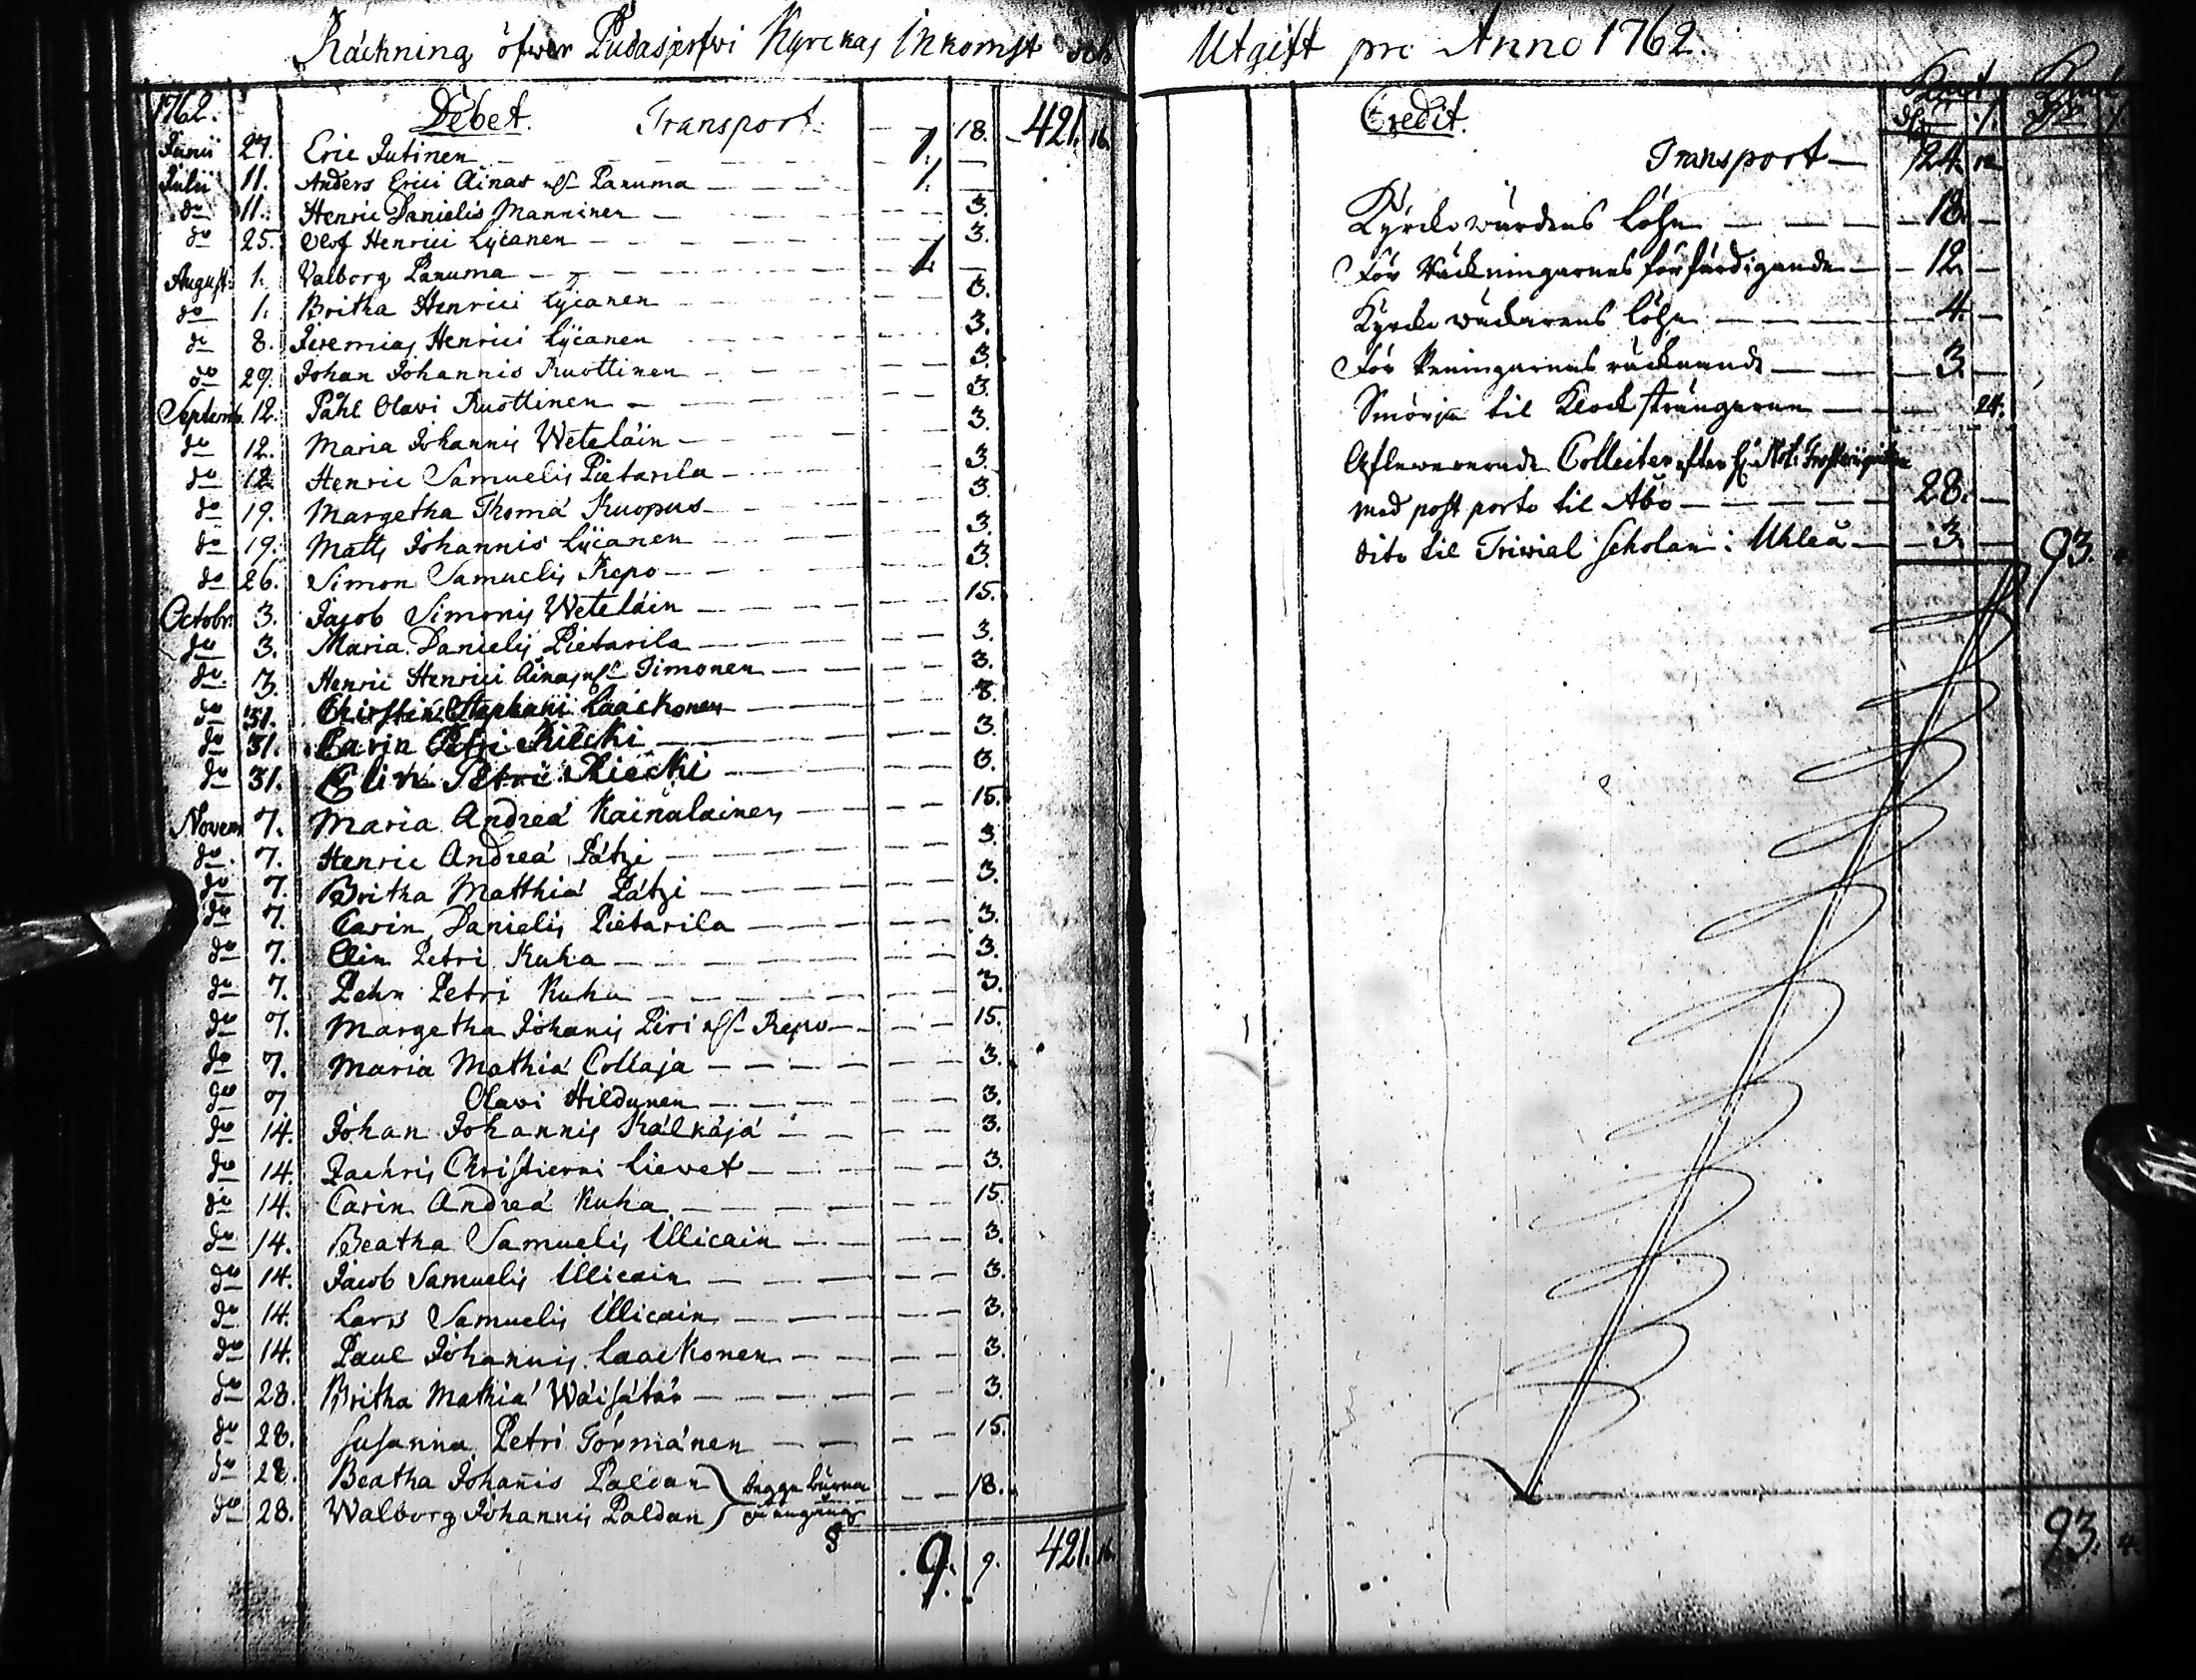 Räckning öfwer Pudasjerfwi Kyrckas Inkomst och Utgift pro Anno 1762.
1762. Debet. Transport. — — 18. — 421. 16.
Junii 27. Eric Jutinen — — — 1. —
Julii 11. Anders Erici Ainas Panuma — — — 1. —
do 11. Henric Danielis Manninen — — — 3.
do 25. Olof Henrici Lycanen — — — 3.
August. 1. Valborg Panuma — — — 1. —
do 1. Britha Henrici Lycanen — — — 3.
do 8. Jeremias Henrici Lycanen — — — 3.
do 29. Johan Johannis Ruottinen — — — 3.
Septemb. 12. Påhl Olavi Ruottinen — — — 3.
do 12. Maria Johannis Weteläin — — — 3.
do 12. Henric Samuelis Pietarila — — — 3.
do 19. Margetha Thomä Kuopus — — — 3.
do 19. Matts Johannis Lycanen — — — 3.
do 26. Simon Samuelis Repo — — — 3.
Octobr. 3. Jacob Simonis Weteläin — — — 15.
do 3. Maria Danielis Pietarila — — — 3.
do 3. Henric Henrici Ainas Timonen — — — 3.
do 31. Christin Stephani Laackonen — — — 3.
do 31. Carin Petri Riecki — — — 3.
do 31. Elin Petri Riecki — — — 3.
Novem. 7. Maria Andreä Kainulainen — — — 15.
do 7. Henric Andreä Pätzi — — — 3.
do 7. Britha Matthiä Pätzi — — — 3.
do 7. Carin Danielis Pietarila — — — 3.
do 7. Elin Petri Kuha — — — 3.
do 7. Pehr Petri Kuha — — — 3.
do 7. Margetha Johanis Piri Repo — — — 15.
do 7. Maria Mathiä Collaja — — — 3.
do 7 Olavi Hildunen — — — 3.
do 14. Johan Johannis Kälkäjä — — — 3.
do 14. Zachris Christierni Lievet — — — 3.
do 14. Carin Andreä Kuha — — — 15.
do 14. Beatha Samuelis Illicain — — — 3.
do 14. Jacob Samuelis Illicain — — — 3.
do 14. Lars Samuelis Illicain — — — 3.
do 14. Paul Johannis Laackonen — — — 3.
do 28. Britha Mathiä Wäisätär — — — 3.
do 28. Susanna Petri Törmänen — — — 15.
do 28. Beatha Johanis Paldan
do 28. Walborg Johannis Paldan begge barnen — — 18.
S 9. 9. 421. 16.
Credit.
Transport — 24. 12
Kyrckowärdens Löhn — — — 18. —
För Räckningarnas förfärdigande — 12. —
Kyrckowäckarens Löhn — — — 4. —
För Peningarnas räcknande — — 3. —
Smörja til Klocksträngarna — — 24.
Aflewererade Collecter efter
med post porto til Åbo — — — 28. —
dito til Trivial Scholan i Uhleå — 3. — 93. 4.
93. 4.